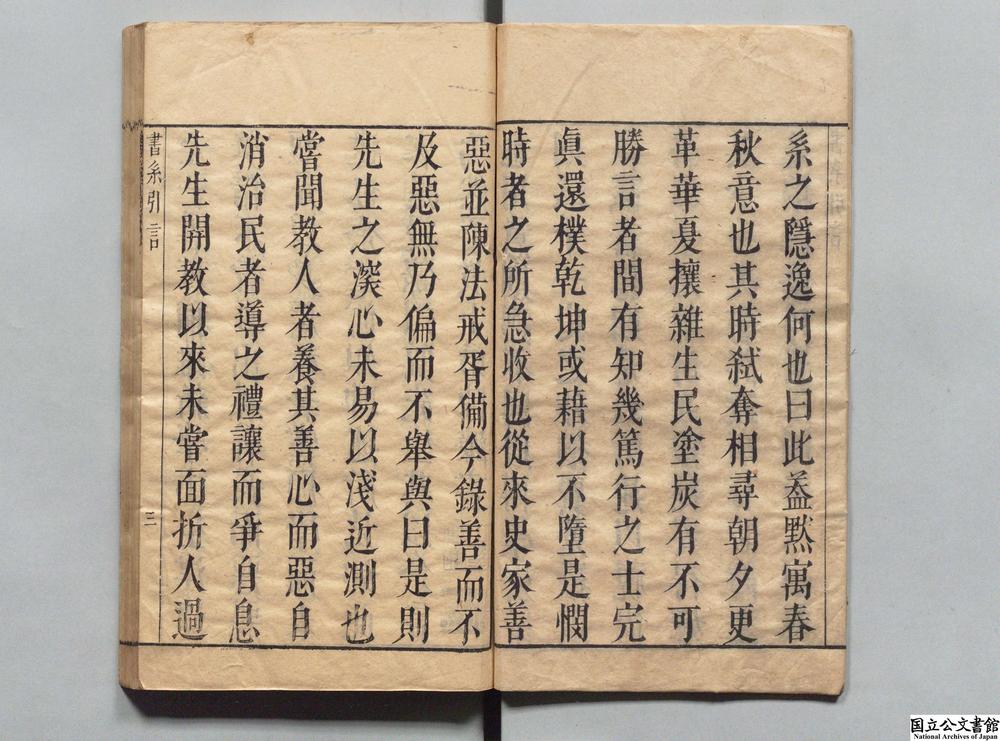 系之隱逸何也曰此葢默寓春
秋意也其時弑奪相尋朝夕更
革華夏攘雜生民塗炭有不可
勝言者間有知幾篤行之士完
眞還樸乾坤或藉以不墮是憫
時者之所急收也從來史家善
惡並陳法戒胥備今錄善而不
及惡無乃偏而不舉與曰是則
先生之深心未易以淺近測也
嘗聞教人者養其善心而惡自
消治民者導之禮讓而爭自息
先生開教以來未嘗面折人過
書系引言
三
国立公文書館
National Archives of Japan